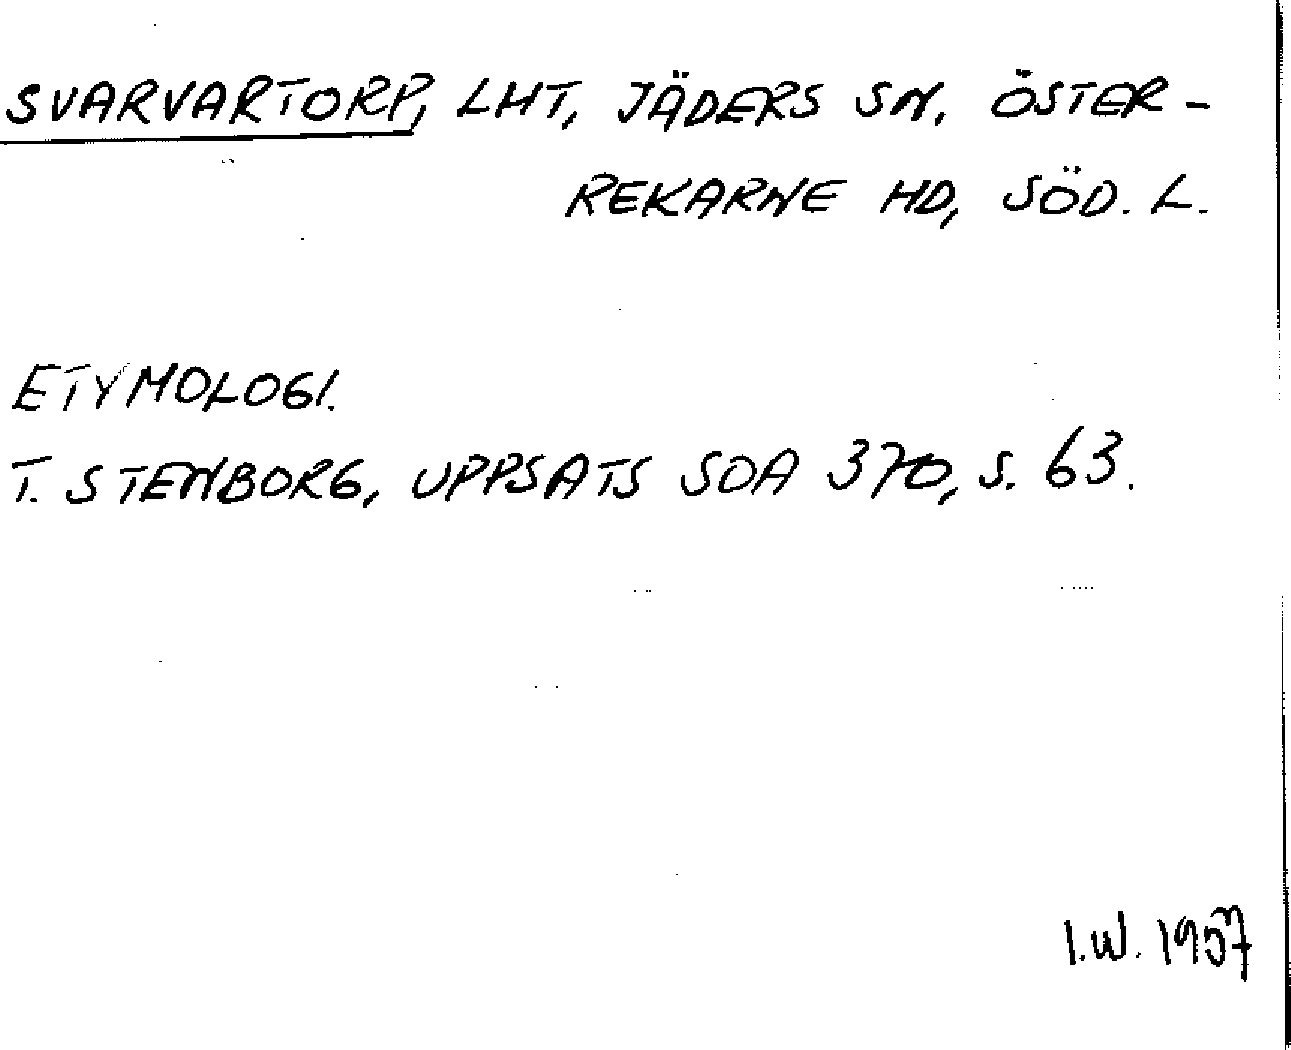 SVARVARTORP, LHT, JÄDERS SN, ÖSTER-
REKARNE HD, SÖD. L.
ETYMOLOGI.
T. STENBORG, UPPSATS SOA 370, S. 63.
I.W. 1957